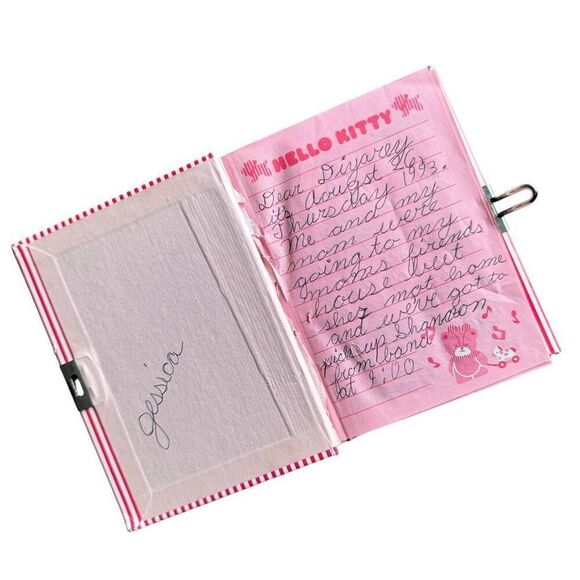 jessica
HELLO KITTY
Dear Diyarey
its Avugst 26
Thursday 1993.
Me and my
mom were
going to my
moms firends
house but
shes not home
and we've got to
pick up Shannon
from band
at 9:00